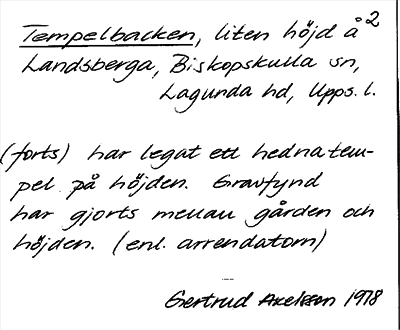 2
Tempelbacken, liten höjd å
Landsberga, Biskopskulla sn,
Lagunda hd, Upps. l.
(forts) har legat ett hednatem-
pel på höjden. Gravfynd
har gjorts mellan gården och
höjden. (enl. arrendatorn)
Gertrud Axelsson 1978